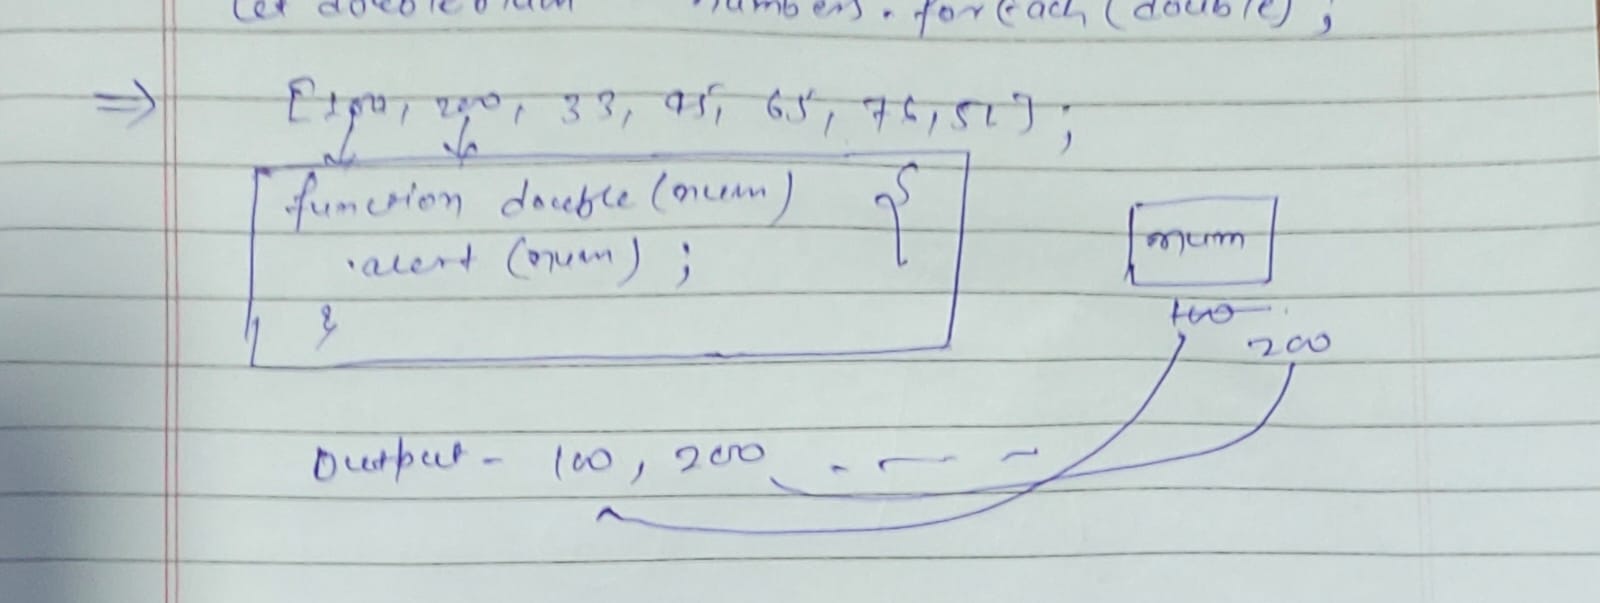 let double numbers.forEach(double);
=> [100, 200, 33, 95, 65, 76, 51];
function double (num) {
alert (num);
}
num
100
200
Output - 100, 200 . - -